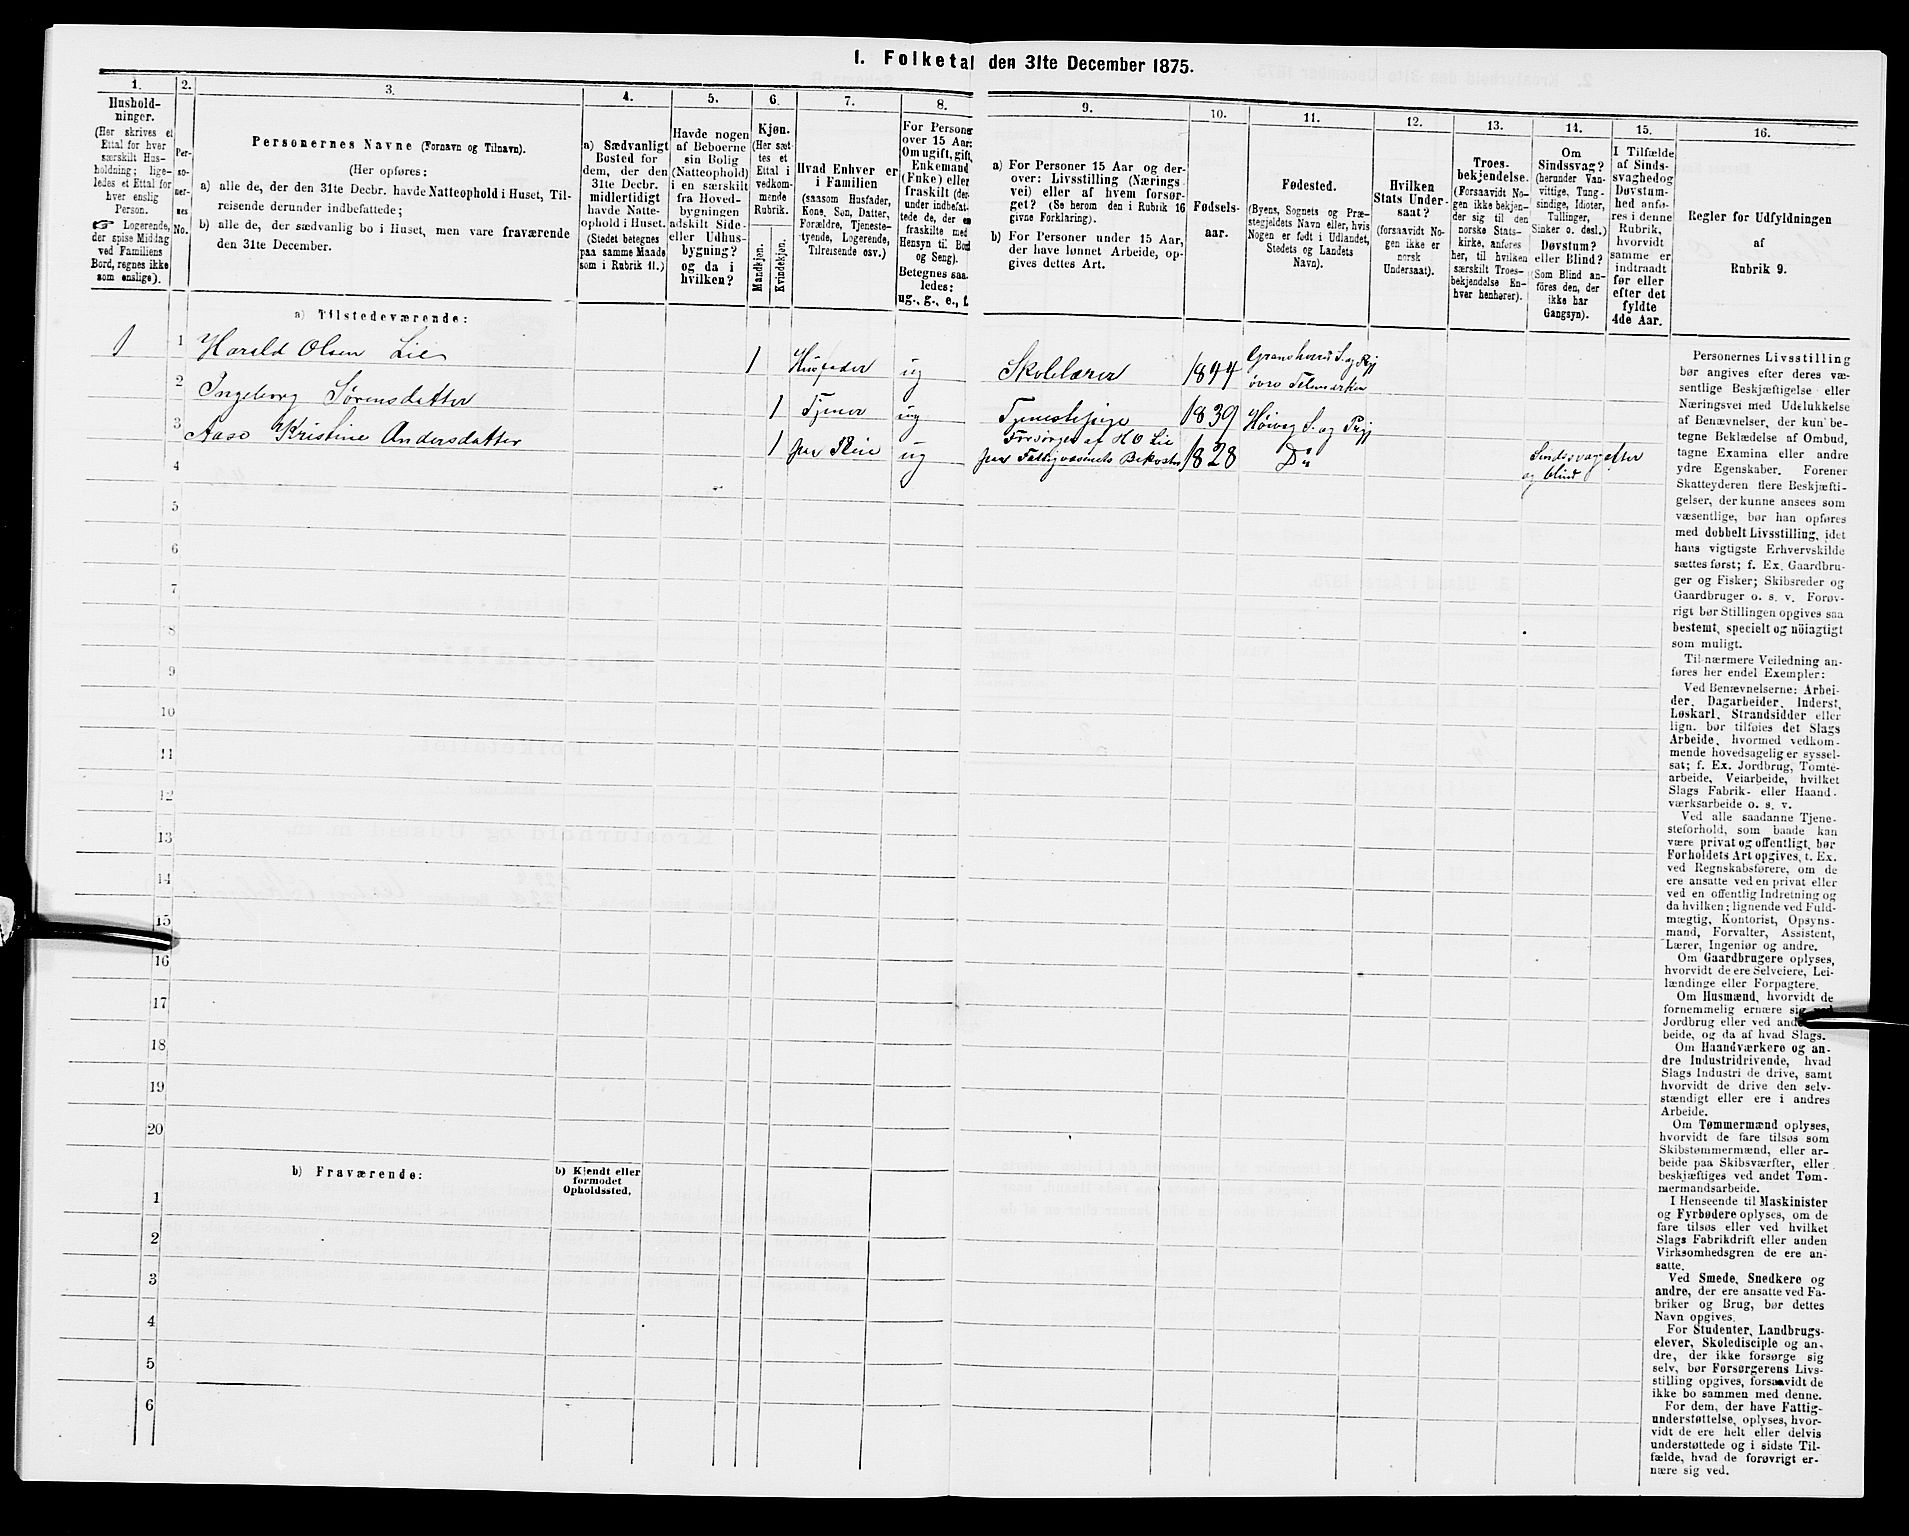 1. Folketal den 31te December 1875.
1. 2. 3. 4. 5. 6. 7. 8. 9. 10. 11. 12. 13. 14. 15. 16.
Hushold-
ninger.
(Her skrives et
Ettal for hver
særskilt Hus-
holdning; lige-
ledes et Ettal for
hver enslig
Person.
☞ Logerende,
der spise Middag
ved Familiens
Bord, regnes ikke
som enslige).
Per-
so-
ner-
nes
No.
Personernes Navne (Fornavn og Tilnavn).
(Her opføres:
a) alle de, der den 31te Decbr. havde Natteophold i Huset, Til-
reisende derunder indbefattede;
b) alle de, der sædvanlig bo i Huset, men vare fraværende
den 31te December.
a) Sædvanligt
Bosted for
dem, der den
31te Decbr.
midlertidigt
havde Natte-
ophold i Huset.
(Stedet betegnes
paa samme Maade
som i Rubrik 11.)
Havde nogen
af Beboerne
sin Bolig
(Natteophold)
i en særskilt
fra Hoved-
bygningen
adskilt Side-
eller Udhus-
bygning?
og da i
hvilken?
Kjøn.
(Her sæt-
tes et
Ettal i
vedkom-
mende
Rubrik.
Mandkjøn.
Kvindekjøn.
Hvad Enhver er
i Familien
(saasom Husfader,
Kone, Søn, Datter,
Forældre, Tjeneste-
tyende, Logerende,
Tilreisende osv.)
For Personer
over 15 Aar:
Om ugift, gift,
Enkemand
(Enke) eller
fraskilt (der-
under indbefat-
tede de, der er
fraskilte med
Hensyn til Bord
og Seng).
Betegnes saa-
ledes:
ug., g., e., f.
a) For Personer 15 Aar og der-
over: Livsstilling (Nærings-
vei) eller af hvem forsør-
get? (Se herom den i Rubrik 16
givne Forklaring).
b) For Personer under 15 Aar,
der have lønnet Arbeide, op-
gives dettes Art.
Fødsels-
aar.
Fødested.
(Byens, Sognets og Præ-
stegjeldets Navn eller, hvis
Nogen er født i Udlandet,
Stedets og Landets
Navn).
Hvilken
Stats Under-
saat?
(forsaavidt No-
gen ikke er
norsk
Undersaat).
Troes-
bekjendelse.
(Forsaavidt No-
gen ikke bekjen-
der sig til den
norske Stats-
kirke, anføres
her, til hvilken
særskilt Troes-
bekjendelse En-
hver henhører).
Om
Sindssvag?
(herunder Van-
vittige, Tung-
sindige, Idioter,
Tullinger,
Sinker o. desl.)
Døvstum?
eller Blind?
(Som Blind an-
føres den, der
ikke har
Gangsyn).
I Tilfælde
af Sinds-
svaghed og
Døvstum-
hed anfø-
res i denne
Rubrik,
hvorvidt
samme er
indtraadt
før eller
efter det
fyldte
4de Aar.
Regler for Udfyldningen
af
Rubrik 9.
a) Tilstedeværende:
1 1 Harald Olsen Lie 1 Husfader ug Skolelærer 1844 S. og Pgj øvre Telemarken
2 Ingeborg Sørensdatter 1 Tjener ug Tjenestepige 1839 Høivag S. og Prgj
3 Aase Kristine Andersdatter 1 paa Pleie ug Forsørges af H O Lie paa Fattigvæsenets Bekostn 1828 Do Sindssvag og blind efter
4
5
6
7
8
9
10
11
12
13
14
15
16
17
18
19
20
b) Fraværende:
b) Kjendt eller
formodet
Opholdssted.
1
2
3
4
5
6
Personernes Livsstilling
bør angives efter deres væ-
sentlige Beskjæftigelse eller
Næringsvei med Udelukkelse
af Benævnelser, der kun be-
tegne Beklædelse af Ombud,
tagne Examina eller andre
ydre Egenskaber. Forener
Skatteyderen flere Beskjæfti-
gelser, der kunne ansees som
væsentlige, bør han opføres
med dobbelt Livsstilling, idet
hans vigtigste Erhvervskilde
sættes først; f. Ex. Gaardbru-
ger og Fisker; Skibsreder og
Gaardbruger o. s. v. Forøv-
rigt bør Stillingen opgives saa
bestemt, specielt og nøiagtigt
som muligt.
Til nærmere Veiledning an-
føres her endel Exempler:
Ved Benævnelserne: Arbei-
der, Dagarbeider, Inderst,
Løskarl, Strandsidder eller
lign. bør tilføies det Slags
Arbeide, hvormed vedkom-
mende hovedsagelig er syssel-
sat; f. Ex. Jordbrug, Tomte-
arbeide, Veiarbeide, hvilket
Slags Fabrik- eller Haand-
værksarbeide o. s. v.
Ved alle saadanne Tjene-
steforhold, som baade kan
være privat og offentligt, bør
Forholdets Art opgives, t. Ex.
ved Regnskabsførere, om de
ere ansatte ved en privat eller
ved en offentlig Indretning og
da hvilken; lignende ved Fuld-
mægtig, Kontorist, Opsyns-
mand, Forvalter, Assistent,
Lærer, Ingeniør og andre.
Om Gaardbrugere oplyses,
hvorvidt de ere Selveiere, Lei-
lændinge eller Forpagtere.
Om Husmænd, hvorvidt de
fornemmelig ernære sig ved
Jordbrug eller ved andet
beide, og da af hvad Slags.
Om Haandværkere og an-
dre Industridrivende, hvad
Slags Industri de drive, samt
hvorvidt de drive den selv-
stændigt eller ere i andres
Arbeide.
Om Tømmermænd oplyses,
hvorvidt de fare tilsøs som
Skibstømmermænd, eller ar-
beide paa Skibsværfter, eller
beskjæftiges ved andet Tøm-
mermandsarbeide.
I Henseende til Maskinister
og Fyrbødere oplyses, om de
fare tilsøs eller ved hvilket
Slags Fabrikdrift eller anden
Virksomhedsgren de ere an-
satte.
Ved Smede, Snedkere og
andre, der ere ansatte ved Fa-
briker og Brug, bør dettes
Navn opgives.
For Studenter, Landbrugs-
elever, Skoledisciple og an-
dre, der ikke forsørge sig
selv, bør Forsørgerens Livs-
stilling opgives, forsaavidt de
ikke bo sammen med denne.
For dem, der have Fattig-
understøttelse, oplyses, hvor-
vidt de ere helt eller delvis
understøttede og i sidste Til-
fælde, hvad de forøvrigt er-
nære sig ved.